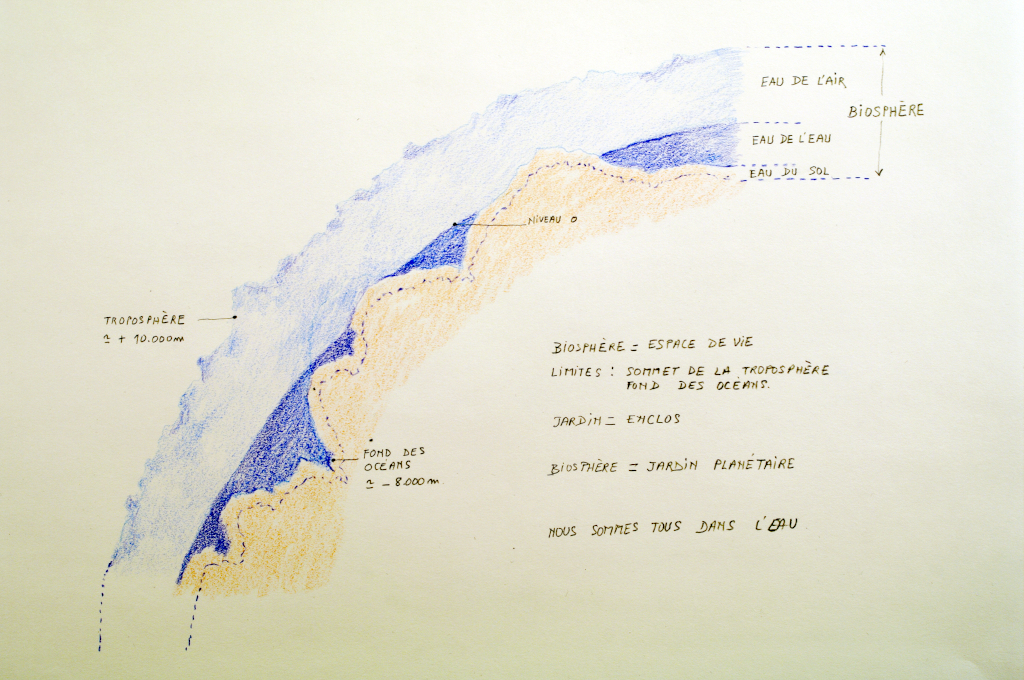 EAU DE L'AIR
BIOSPHÈRE
EAU DE L'EAU
EAU DU SOL
NIVEAU 0
TROPOSPHÈRE
≃ + 10.000m
FOND DES
OCEANS
≃ – 8.000m
BIOSPHÈRE = ESPACE DE VIE
LIMITES : SOMMET DE LA TROPOSPHÈRE
FOND DES OCÉANS.
JARDIN = ENCLOS
BIOSPHÈRE = JARDIN PLANÉTAIRE
NOUS SOMMES TOUS DANS L'EAU